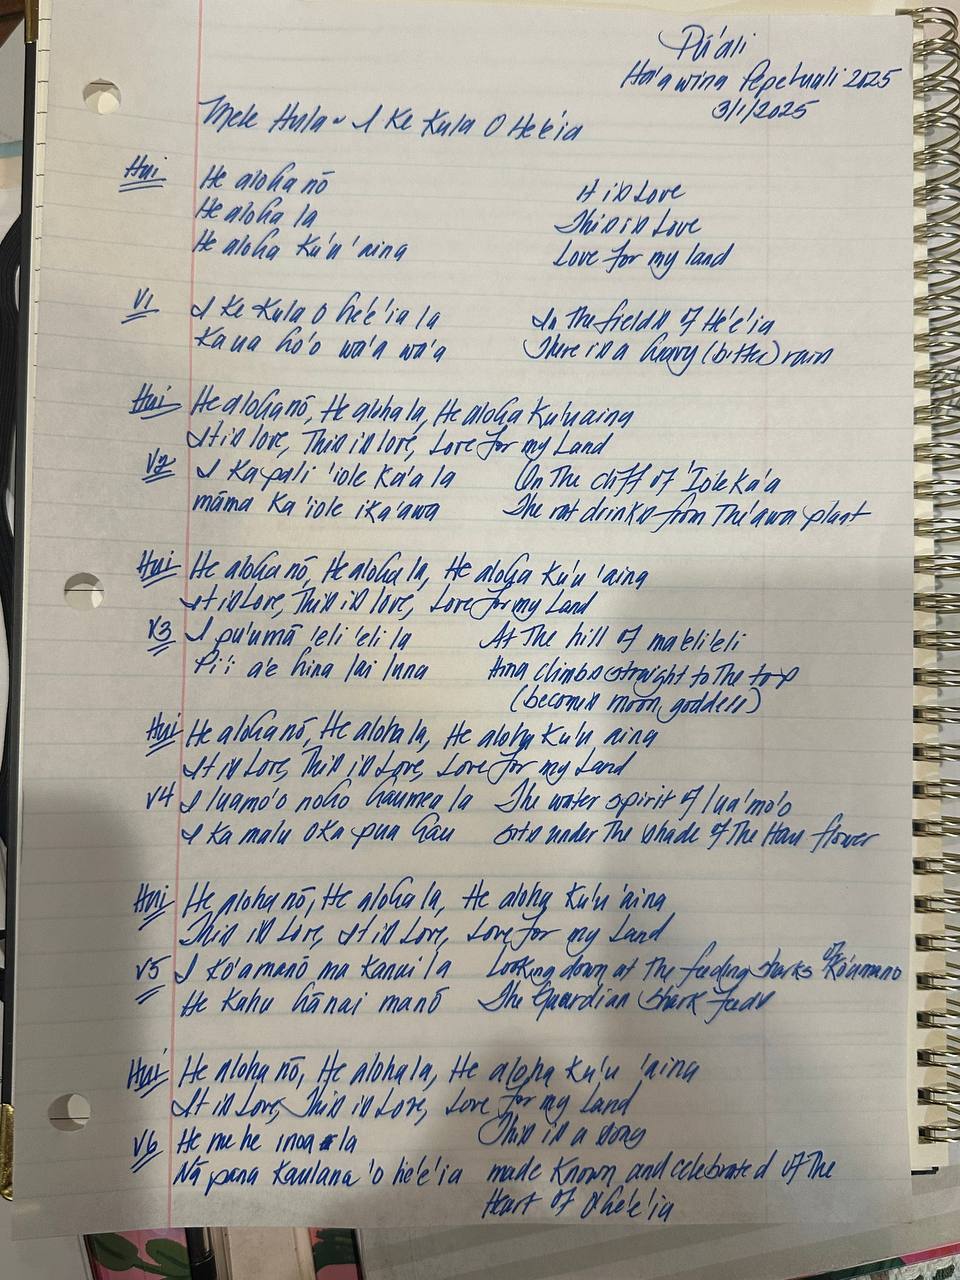 Pū'ali
Ha'awina Pepeluali 2025
3/1/2025
Mele Hula ~ I Ke Kula O He'e'ia
Hui He aloha nō It is Love
He aloha la This is Love
He aloha Ku'u 'aina Love for my land
V1 I Ke Kula O he'e'ia la In The fields of He'e'ia
Ka ua ho'o wa'a wa'a There is a heavy (bitter) rain
Hui He aloha nō, He aloha la, He aloha Ku'u aina
It is love, This is love, Love for my Land
V2 I Ka pali 'iole Ka'a la On The cliff of 'Iole Ka'a
māma Ka 'iole i Ka 'awa The rat drinks from The 'awa plant
Hui He aloha nō, He aloha la, He aloha Ku'u 'aina
It is Love, This is love, Love for my Land
V3 I pu'u mā 'eli 'eli la At The hill of ma'eli'eli
Pi'i a'e hina lai luna Hina climbs straight to The top
(becomes moon goddess)
Hui He aloha nō, He aloha la, He aloha Ku'u aina
It is Love, This is Love, Love for my Land
V4 I luamo'o noho haumea la The water spirit of lua'mo'o
I Ka malu O Ka pua hau sits under The shade of The Hau flower
Hui He aloha nō, He aloha la, He aloha Ku'u 'aina
This is Love, It is Love, Love for my Land
V5 I Ko'amanō ma Kanui la Looking down at The feeding sharks of Ko'amano
He Kahu hānai manō The Guardian shark feeds
Hui He aloha nō, He aloha la, He aloha Ku'u 'aina
It is Love, This is Love, Love for my Land
V6 He me he inoa la This is a song
Nā pana Kaulana 'o he'e'ia made Known and celebrated of The
Heart of O he'e'ia